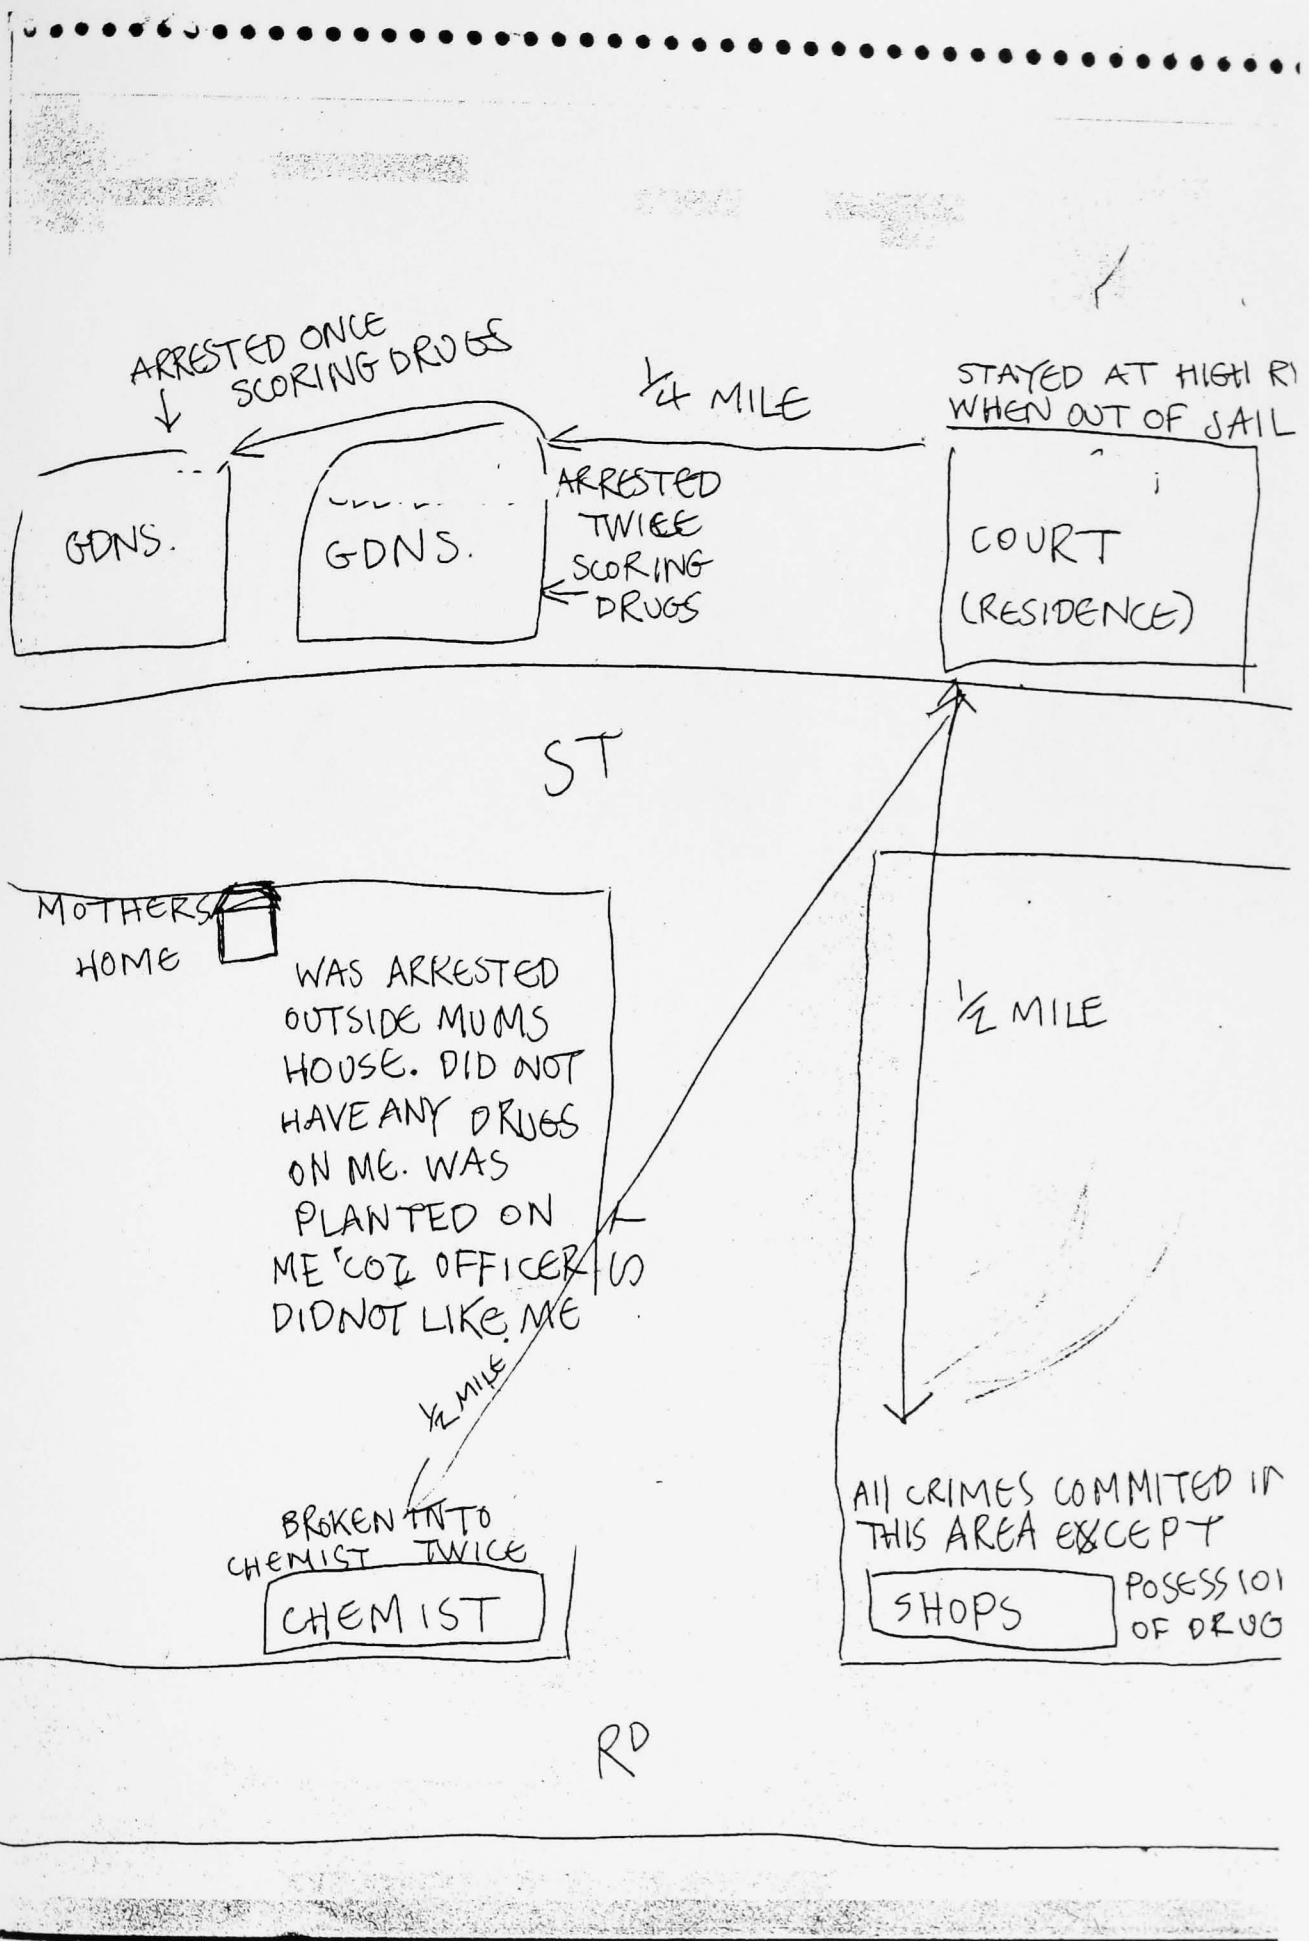 ARRESTED ONCE
SCORING DRUGS
1/4 MILE
STAYED AT HIGH RI
WHEN OUT OF JAIL
GDNS.
GDNS.
ARRESTED
TWICE
SCORING
DRUGS
COURT
(RESIDENCE)
ST
MOTHERS
HOME
WAS ARRESTED
OUTSIDE MUMS
HOUSE. DID NOT
HAVE ANY DRUGS
ON ME. WAS
PLANTED ON
ME 'COZ OFFICER
DIDNOT LIKE ME
ST
1/2 MILE
1/2 MILE
BROKEN INTO
CHEMIST TWICE
CHEMIST
All CRIMES COMMITED IN
THIS AREA EXCEPT
SHOPS
POSESSIOI
OF DRUG
RD